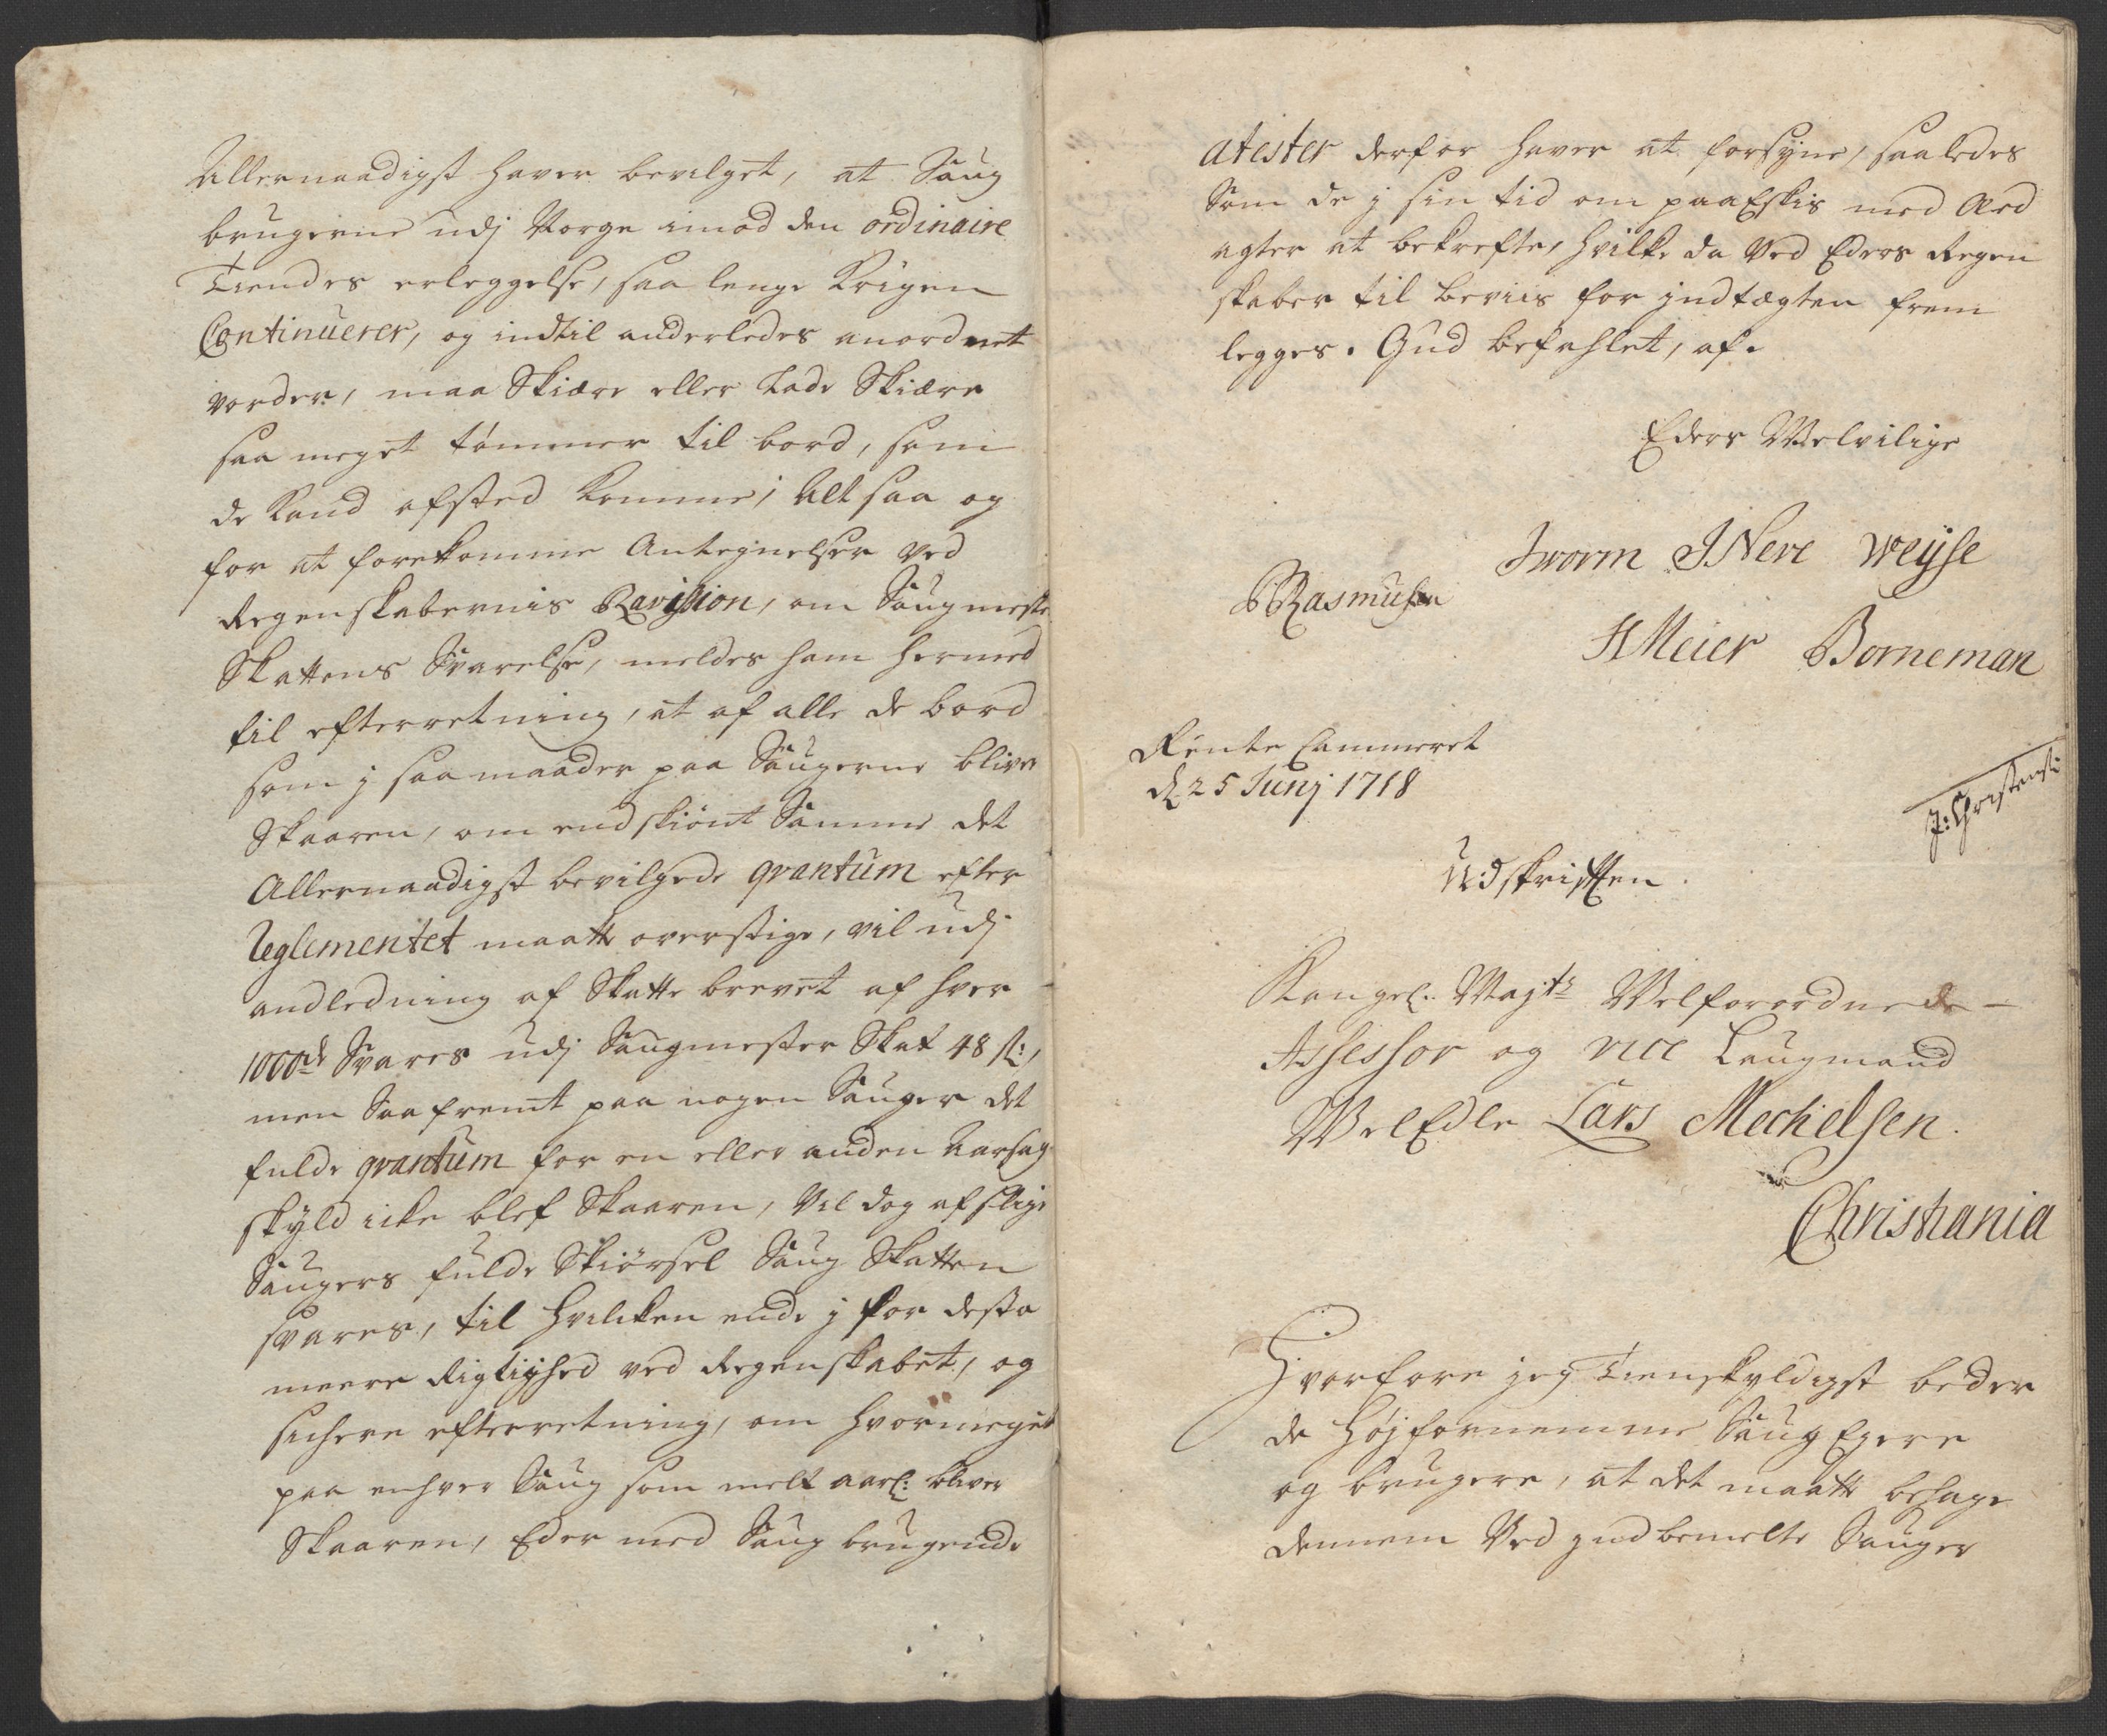 Allernaadigst haver bevilget, at Saug
brugerne udj Norge imod den ordinaire
Tiendes erleggelse, saa lenge Krigen
Continuerer, og indtil anderledes anordnet
vorder, maa Skiære eller Lade Skiære
saa meget tømmer til bord, som
de Kand afsted komme; Alt saa og
for at forekomme Antegnelser ved
Regenskabernis Revision, om Saugmester
Skattens Svarelse, meldes ham hermed
til efterretning, at af alle de bord
som j saa maader paa Saugerne bliver
Skaaren, om end skiønt Samme det
Allernaadigst bevilgede qvantum efter
Reglementet maatte overstige, vil udj
andledning af Skatte brevet af hver
1000de Svares udj Saugmester Skat 48 s:,
men Saafremt paa nogen Sauger det
fulde qvantum for en eller anden Aarsag
skyld icke blef Skaaren, Vel dog af slige
Saugers fulde Skiørsel Saug Skatten
svares, til hvilcken ende j for desto
meere Rigtighed ved Regenskabet, og
sichere efterretning, om hvormeget
paa enhver Saug som melt aarl: bliver
Skaaren, Eder med Saug brugende
atester derfor haver at forsyne, saaledes
Som de j sin tid om paaEskis med Æd
agter at bekrefte, hvilke da Ved Eders Regen
skaber til beviis for jndtægten frem
legges. Gud befahlet, af.
Eders Welvilige
Jworm JNeve Weyse
BRasmusen
HMeier Borneman
Rente Cammeret
d. 25 Junj 1718
J: Christens:
Udskriften.
Kongel. Mayts Welforordnede
Assessor og vice Laugmand
WelEdle Lars Mechelsen.
Christiania
Hvorfore jeg Tienskyldigst beder
de Højfornemme Saug Egere
og brugere, at det maatte behage
dennem Ved jndbemelte Sauger